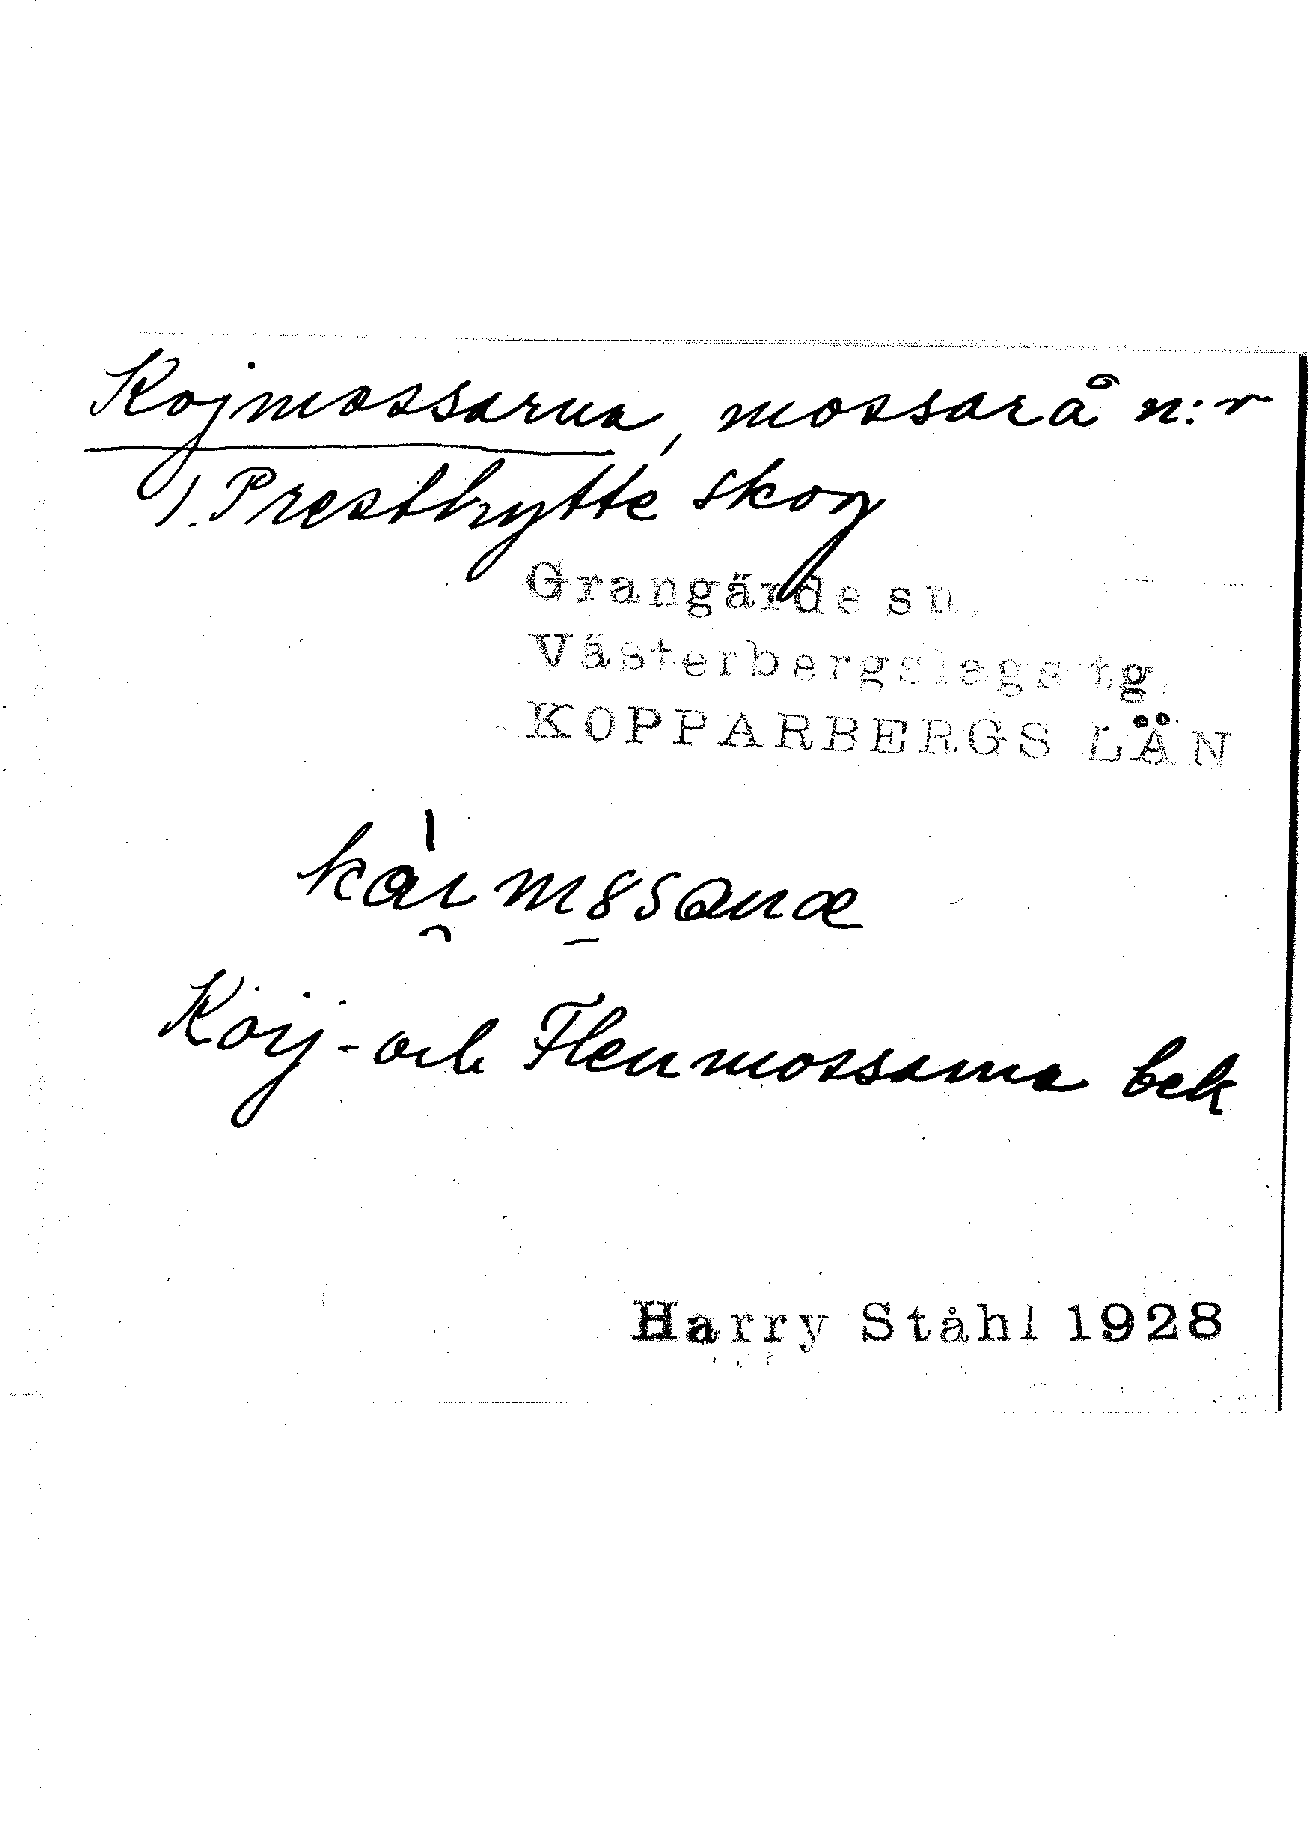 Kojmossarna, mossar å n:r
1. Prestbrytte skog
Grangärde sn.
Västerbergslags tg.
KOPPARBERGS LÄN
Koij- och Flenmossarna bek
Harry Ståhl 1928